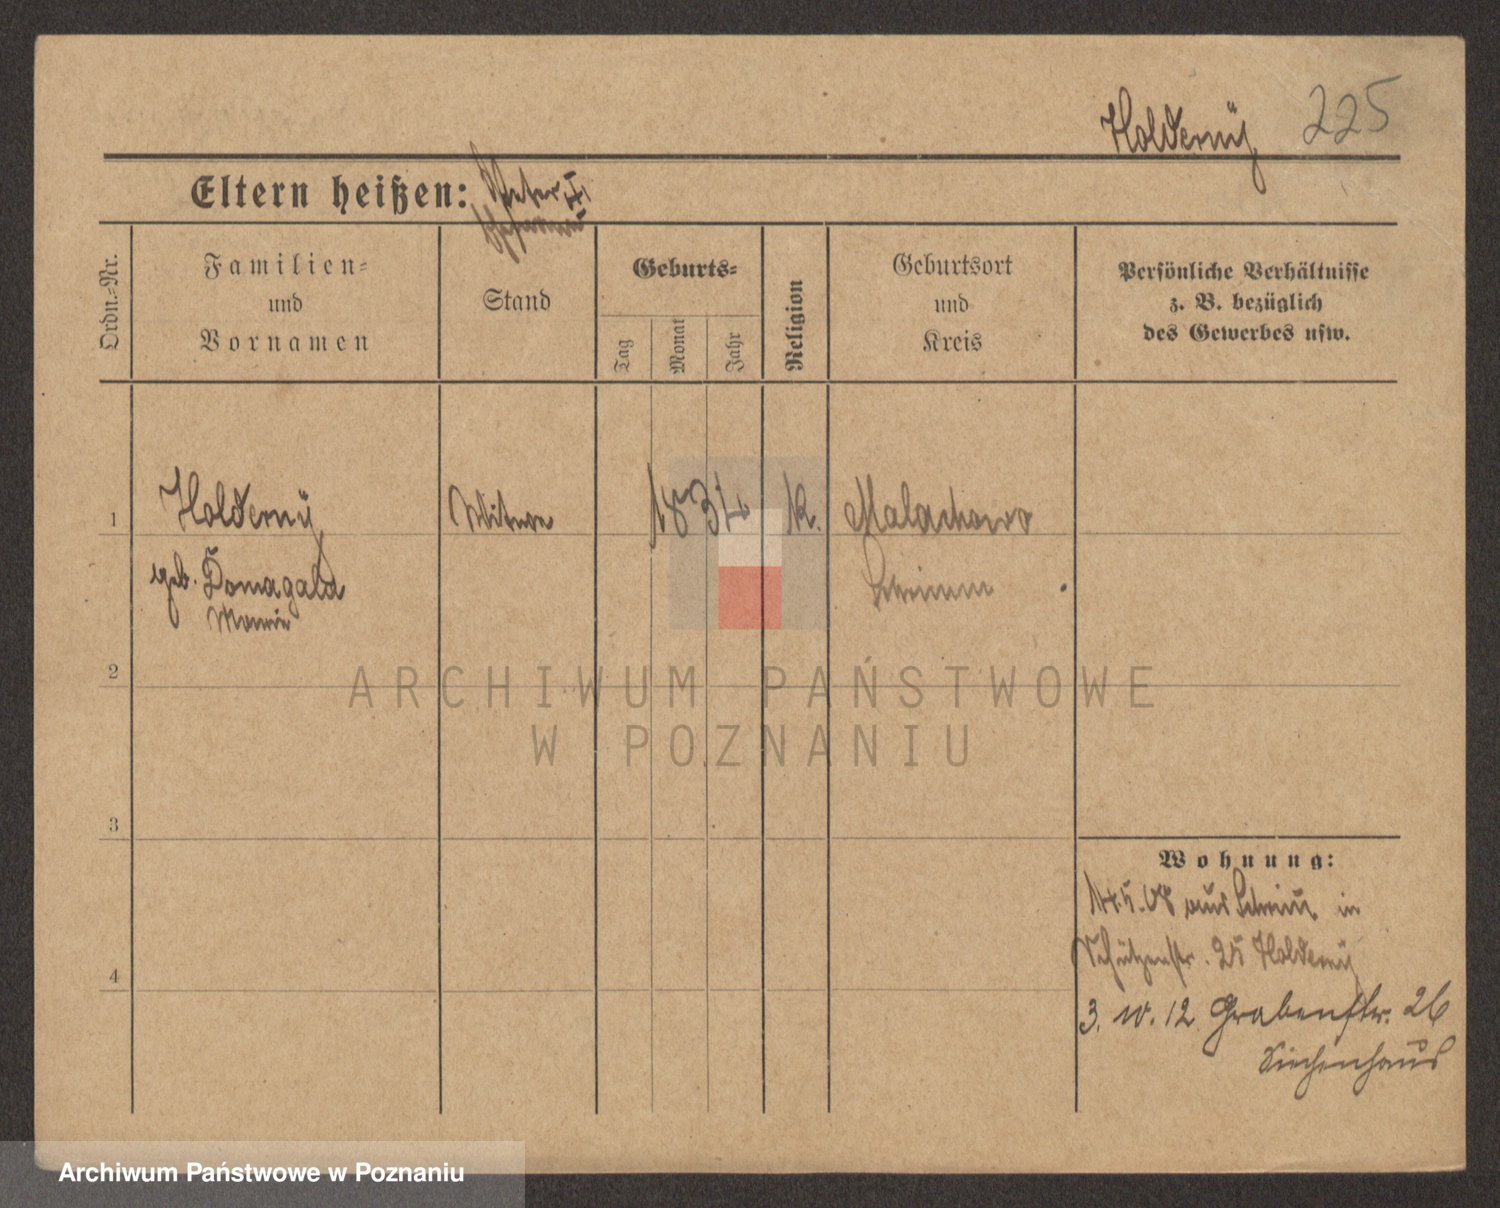 Holderný 225
Eltern heißen: Peter †,
Ordn.-Nr.
Familien-
und
Vornamen
Stand
Geburts-
Tag
Monat
Jahr
Religion
Geburtsort
und
Kreis
Persönliche Verhältnisse
z. B. bezüglich
des Gewerbes usw.
1 Holderný Witwe 1834 K. Malachowo
geb. Domagala Schrimm
Marie
2
ARCHIWUM PAŃSTWOWE
W POZNANIU
3
Wohnung:
14.5.08 aus Schrim in
Schützenstr. 25 Holderný
4
3. 10. 12 Grabenstr. 26
Siechenhaus
Archiwum Państwowe w Poznaniu